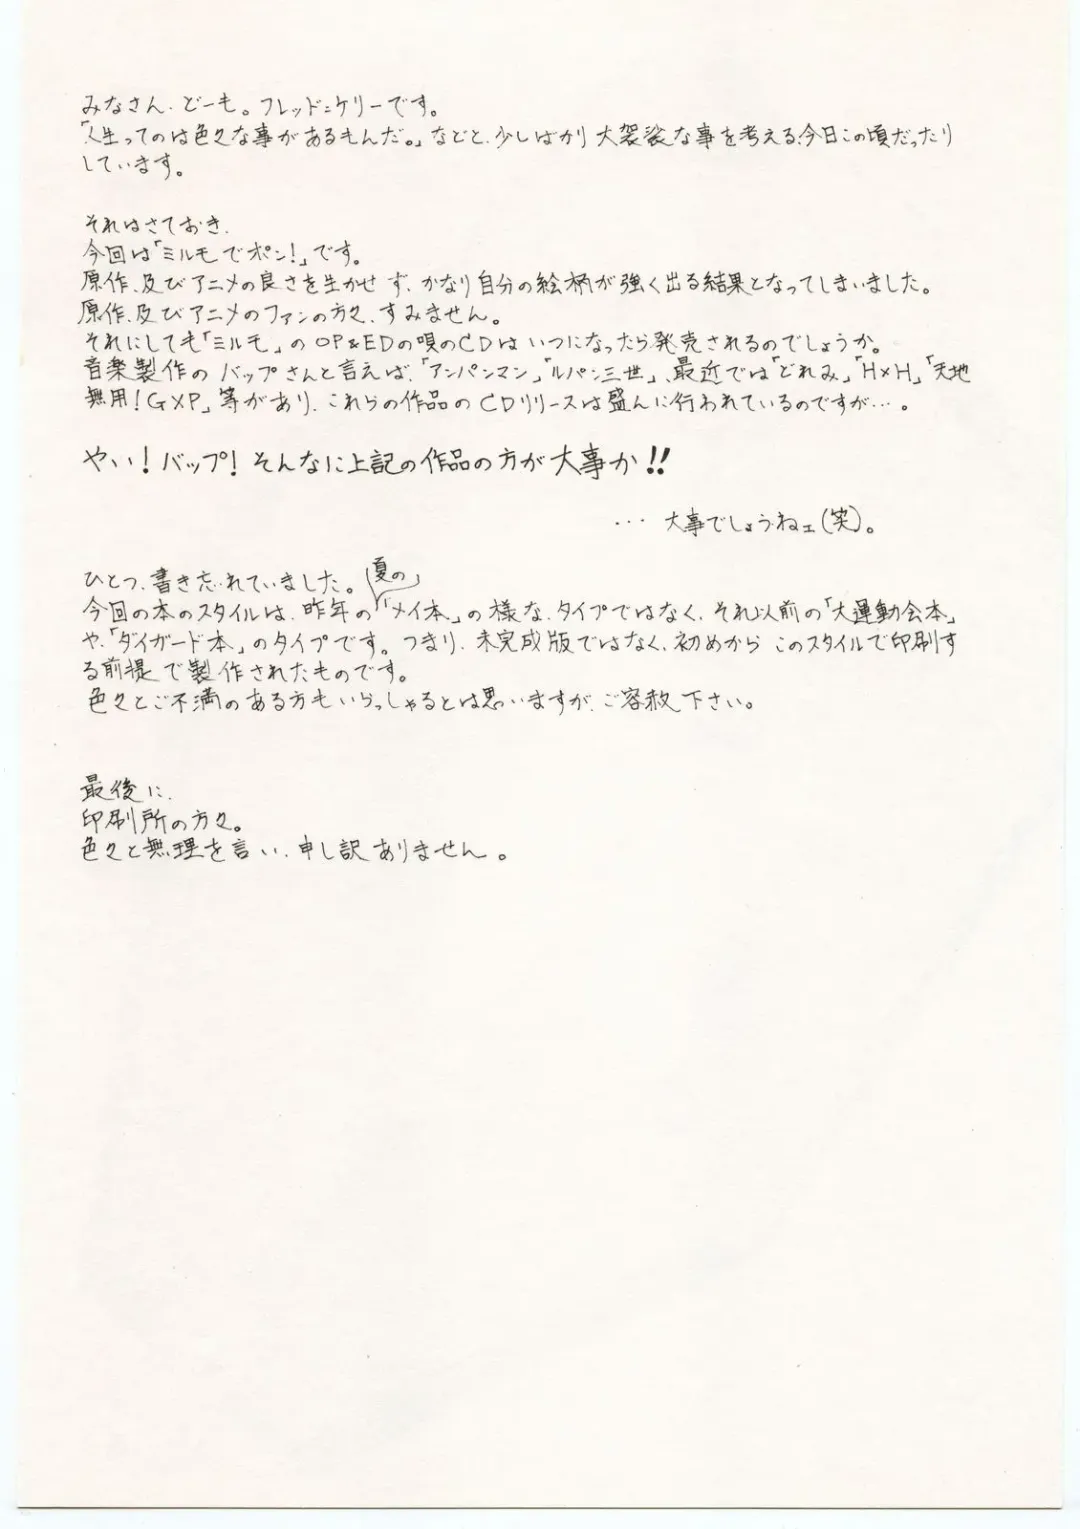 みなさん、どーも。フレッド=ケリーです。
「人生ってのは色々な事があるもんだ。」などと、少しばかり大袈裟な事を考える、今日この頃だったり
しています。
それはさておき、
今回は「ミルモでポン!」です。
原作、及びアニメの良さを生かせず、かなり自分の絵柄が強く出る結果となってしまいました。
原作、及びアニメのファンの方々、すみません。
それにしても「ミルモ」のOP&EDの唄のCDはいつになったら発売されるのでしょうか。
音楽製作のバップさんと言えば、「アンパンマン」「ルパン三世」、最近では「どれみ」「H×H」「天地
無用!GXP」等があり、これらの作品のCDリリースは盛んに行われているのですが…。
やい!バップ!そんなに上記の作品の方が大事か!!
… 大事でしょうねェ(笑)。
ひとつ、書き忘れていました。
今回の本のスタイルは、昨年の夏の「メイ本」の様な、タイプではなく、それ以前の「大運動会本」
や、「ダイガード本」のタイプです。つまり、未完成版ではなく、初めからこのスタイルで印刷す
る前提で製作されたものです。
色々とご不満のある方もいらっしゃるとは思いますが、ご容赦下さい。
最後に、
印刷所の方々。
色々と無理を言い、申し訳ありません。